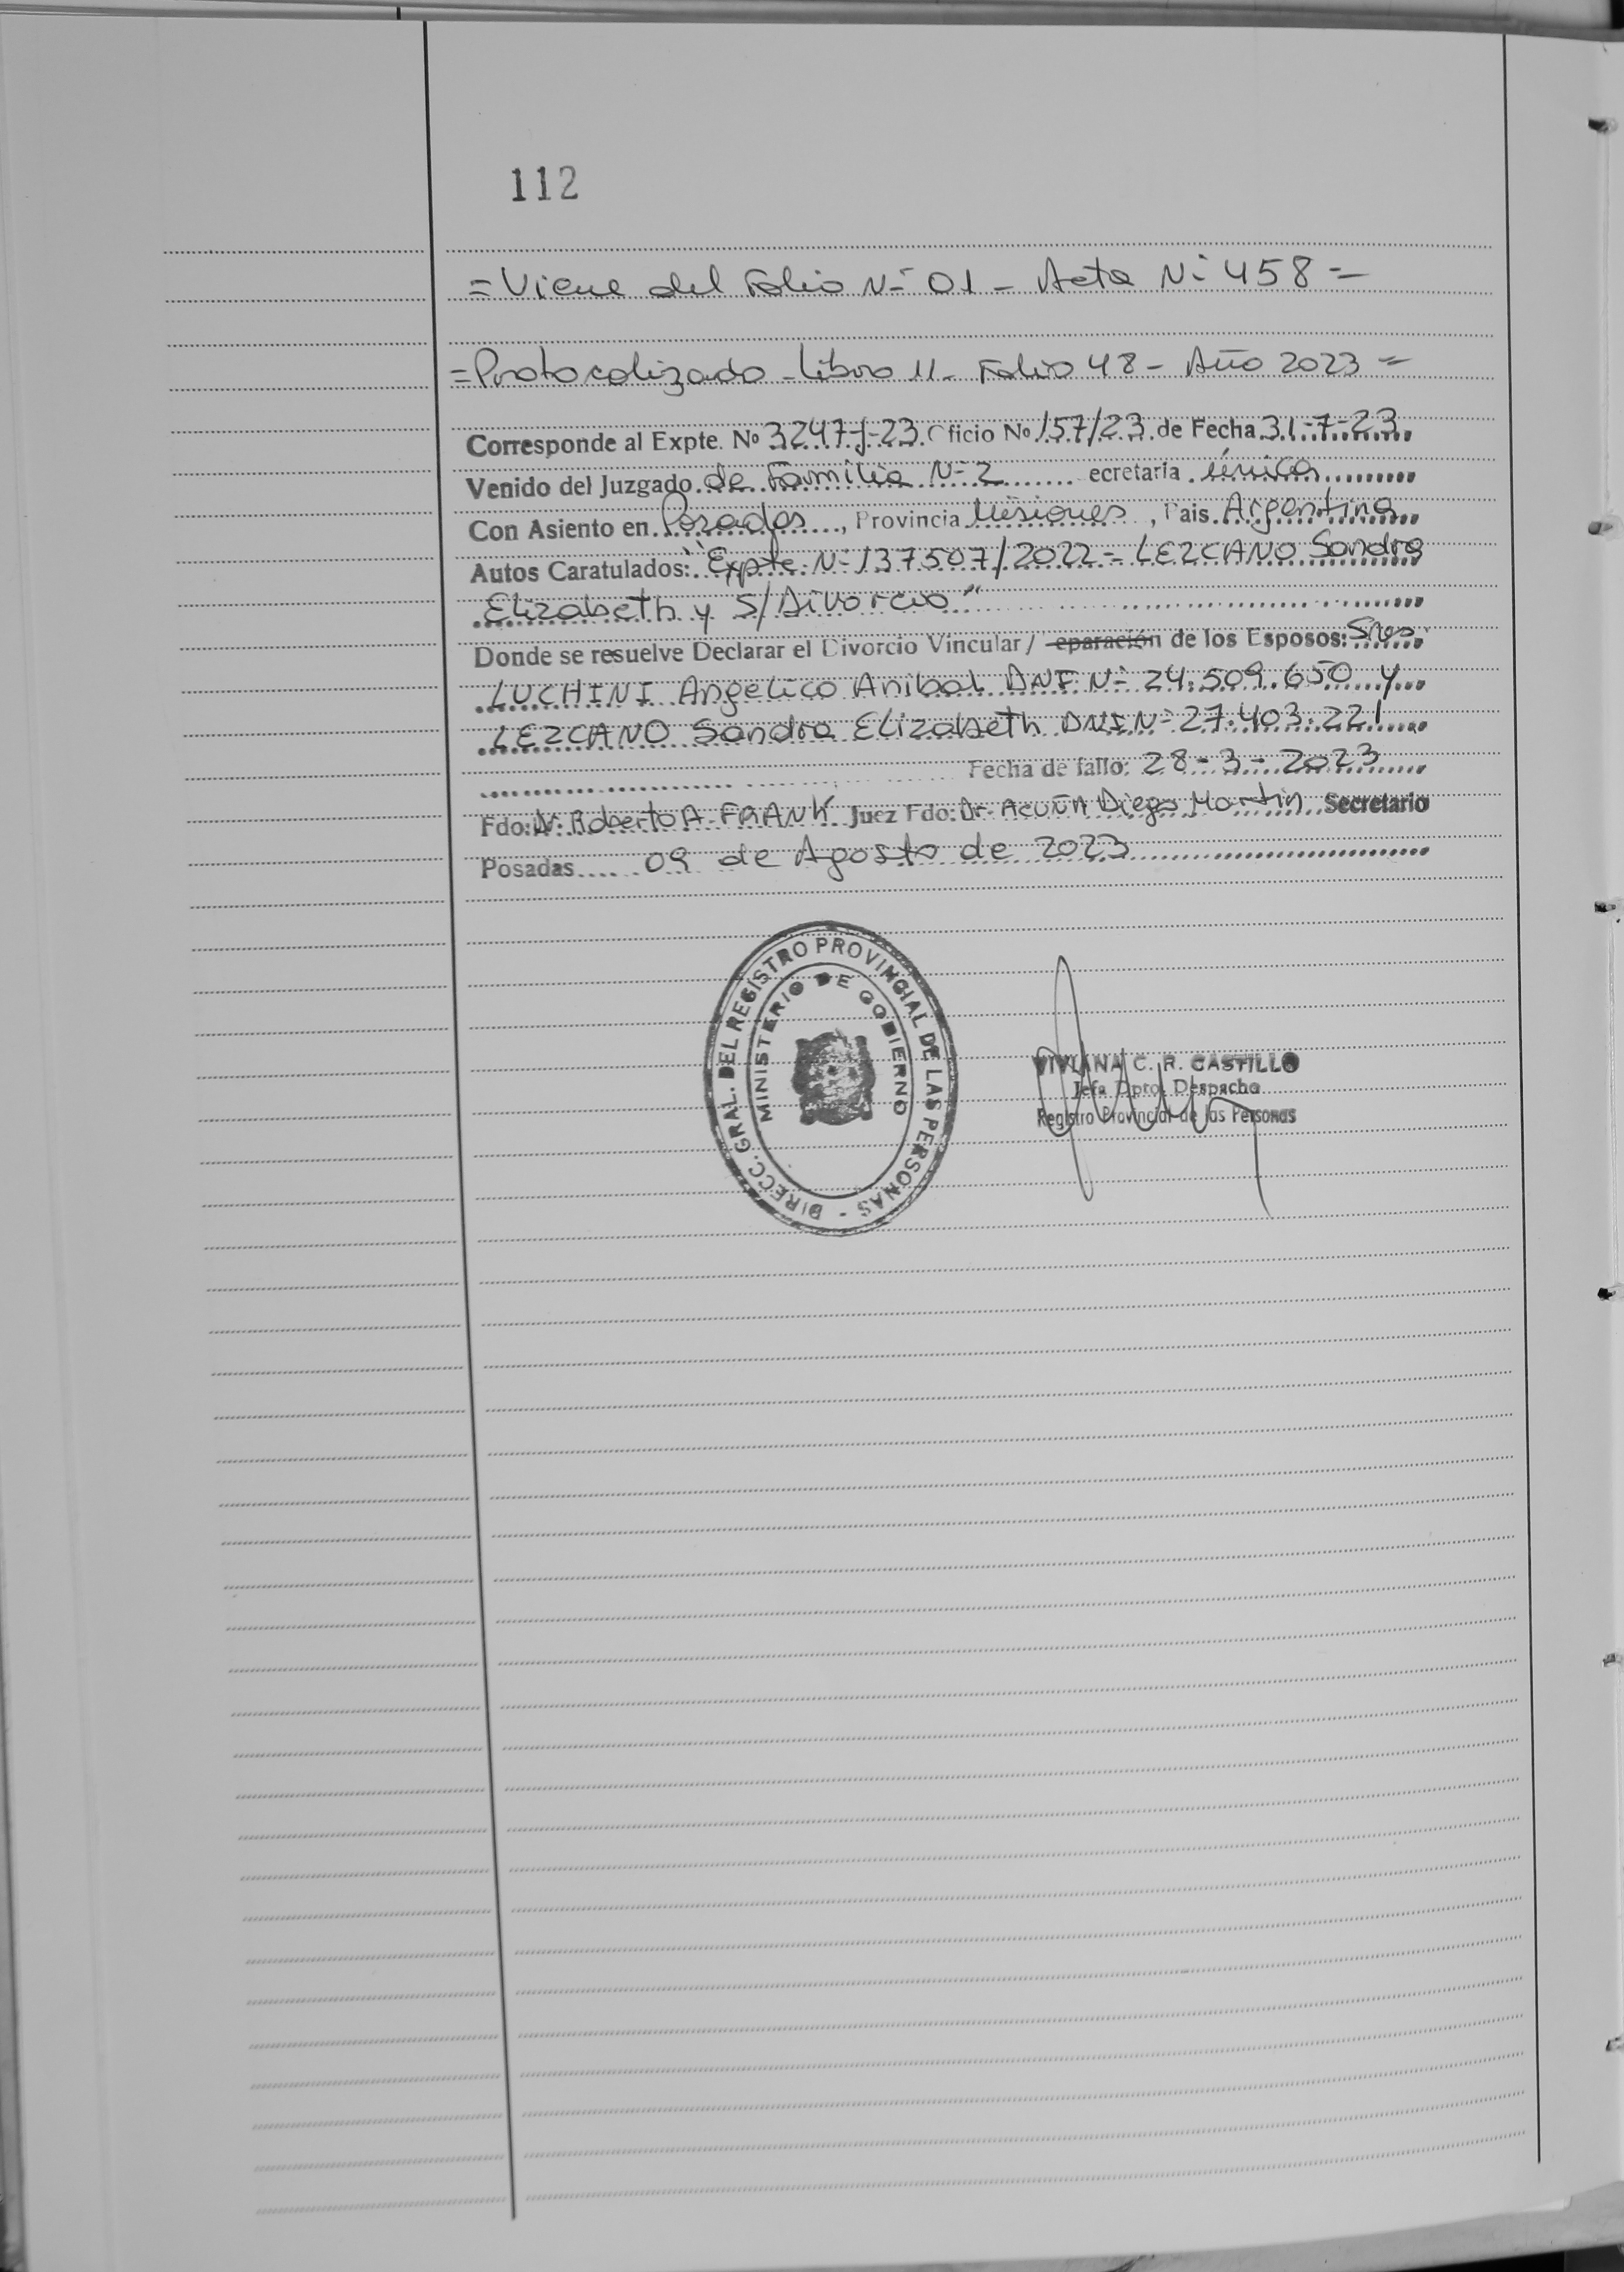 112
= Viene del Folio N° 01 - Acta N° 458 =
= Protocolizado - Libro 11 - Folio 48 - Año 2023 =
Corresponde al Expte. Nº 3247-J-23 Oficio Nº 157/23 de Fecha 31-7-23
Venido del Juzgado de Familia N° 2 ecretaria única
Con Asiento en Posadas, Provincia Misiones, Pais Argentina
Autos Caratulados: "Expte. N° 137507/2022 = LEZCANO Sandra
Elizabeth y S/Divorcio"
Donde se resuelve Declarar el Divorcio Vincular / eparación de los Esposos: Sres.
LUCHINI Angelico Anibal DNI N° 24.509.650 y
LEZCANO Sandra Elizabeth DNI N° 27.403.221
Fecha de fallo: 28-3-2023
Fdo: Dr. Roberto A. FRANK Juez Fdo: Dr. ACUÑA Diego Martin Secretario
Posadas 09 de Agosto de 2023
DIRECC. GRAL. DEL REGISTRO PROVINCIAL DE LAS PERSONAS -
MINISTERIO DE GOBIERNO
VIVIANA C. R. CASTILLO
Jefa Dpto. Despacho
Registro Provincial de las Personas